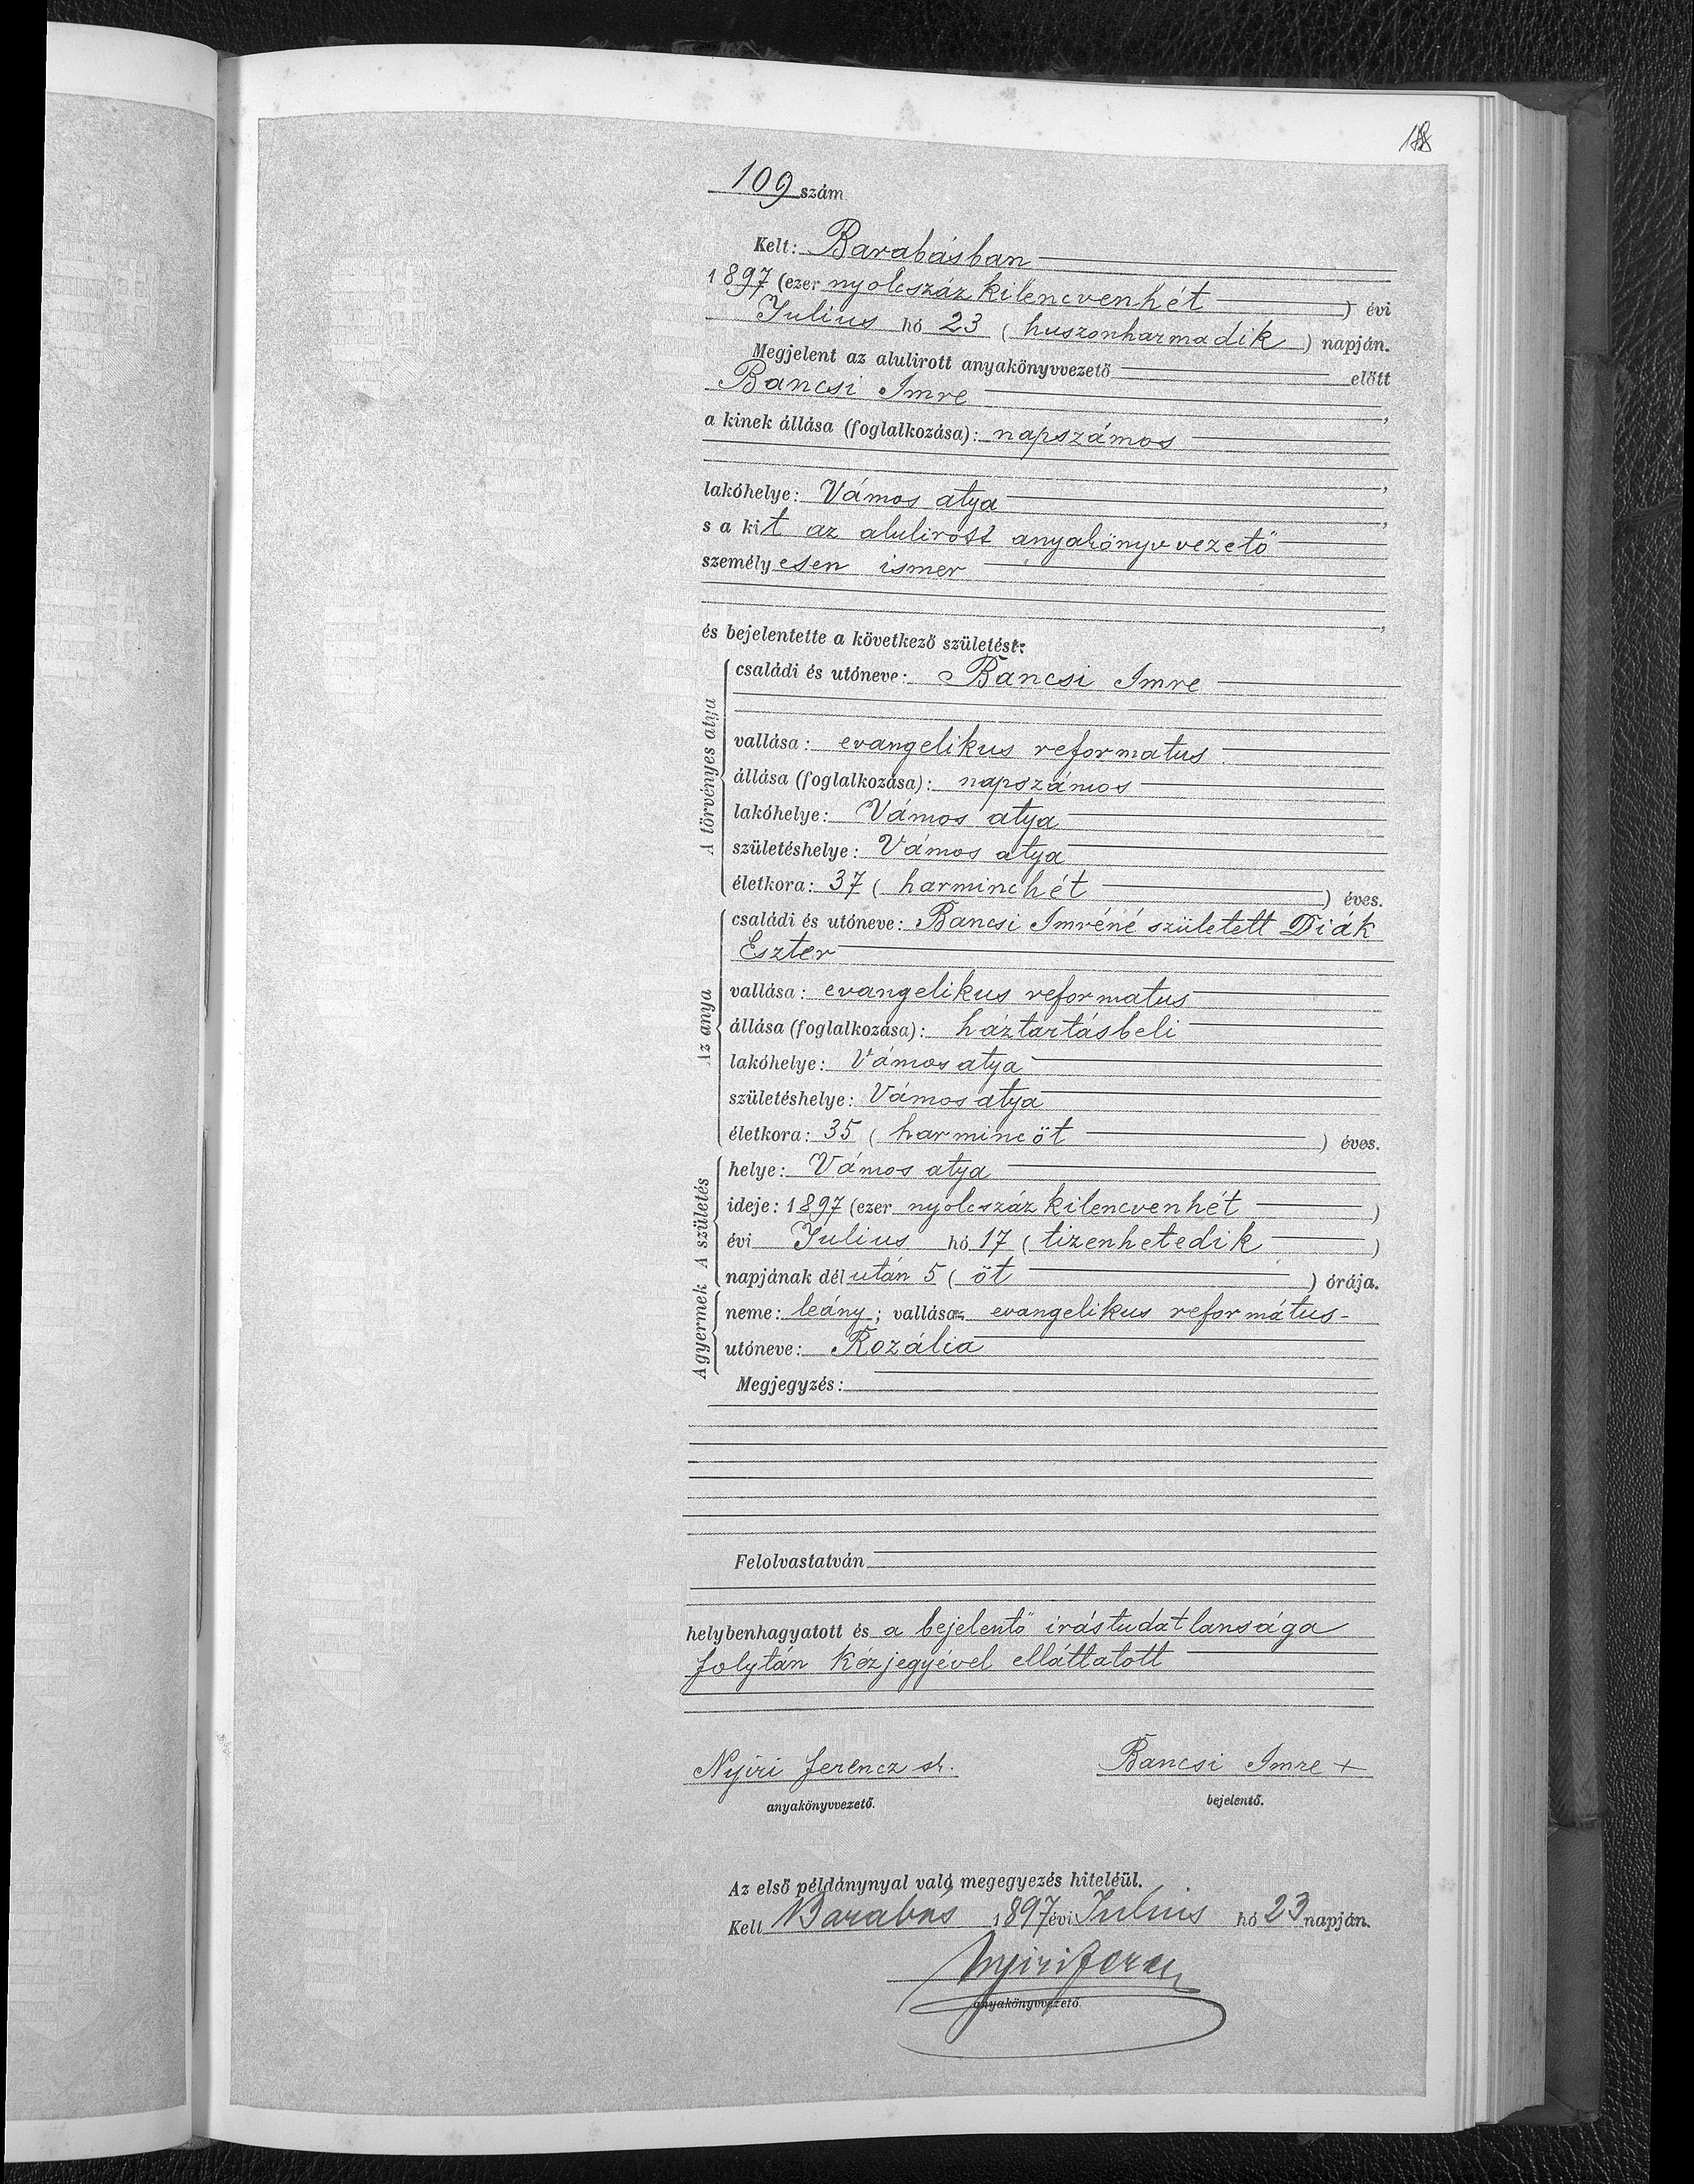 109 szám
Kelt: Barabásban
1897 (ezer nyolcszáz kilencvenhét) évi
Julius hó 23 (huszonharmadik) napján.
Megjelent az alulirott anyakönyvvezető előtt
Bancsi Imre,
a kinek állása (foglalkozása): napszámos,
lakóhelye: Vámos atya,
s a kit az alulirott anyakönyvvezető
személyesen ismer,
és bejelentette a következő születést:
A törvényes atya
családi és utóneve: Bancsi Imre
vallása: evangelikus reformatus
állása (foglalkozása): napszámos
lakóhelye: Vámos atya
születéshelye: Vámos atya
életkora: 37 (harminchét) éves.
Az anya
családi és utóneve: Bancsi Imréné született Diák
Eszter
vallása: evangelikus reformatus
állása (foglalkozása): háztartásbeli
lakóhelye: Vámos atya
születéshelye: Vámos atya
életkora: 35 (harmincöt) éves.
A születés
helye: Vámos atya
ideje: 1897 (ezer nyolcszáz kilencvenhét)
évi Julius hó 17 (tizenhetedik)
napjának délután 5 (öt) órája.
A gyermek
neme: leány; vallása: evangelikus református-
utóneve: Rozália
Megjegyzés:
Felolvastatván
helybenhagyatott és a bejelentő irástudatlansága
folytán kézjegyével elláttatott
Nyiri Ferencz sk.
anyakönyvvezető.
Bancsi Imre +
bejelentő.
Az első példánynyal való megegyezés hiteléül.
Kelt Barabás 1897 évi Julius hó 23 napján.
Nyiri Ferencz
anyakönyvvezető